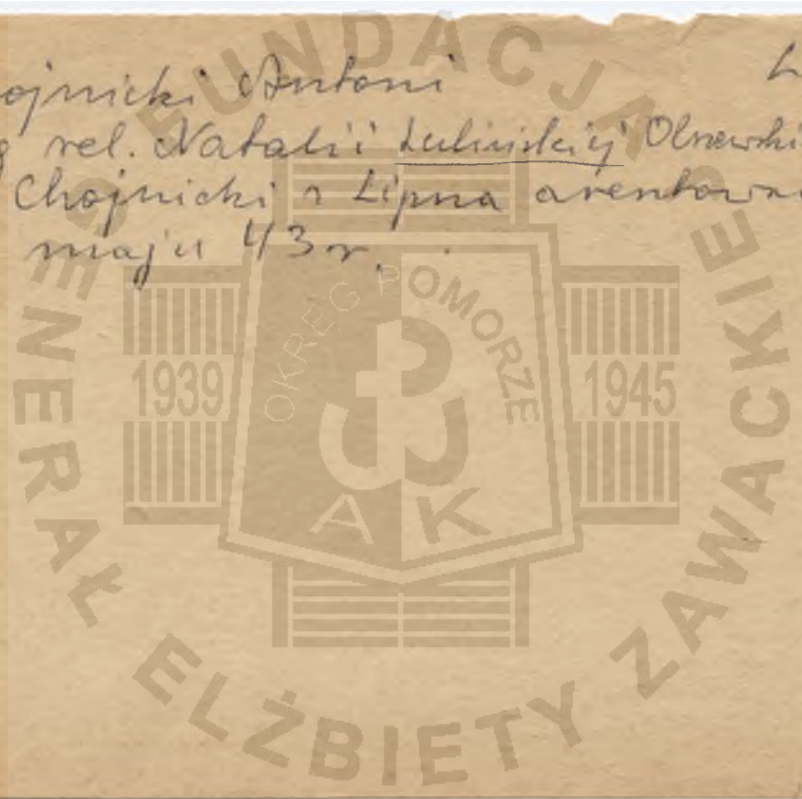 ojnicki Antoni L
g rel. Natalii Lulińskiej Olszewski
Chojnicki z Lipna aresztowa
maju 43 r.
FUNDACJA
GENERAŁ ELŻBIETY ZAWACKIE
OKRĘG POMORZE
1939 1945
AK